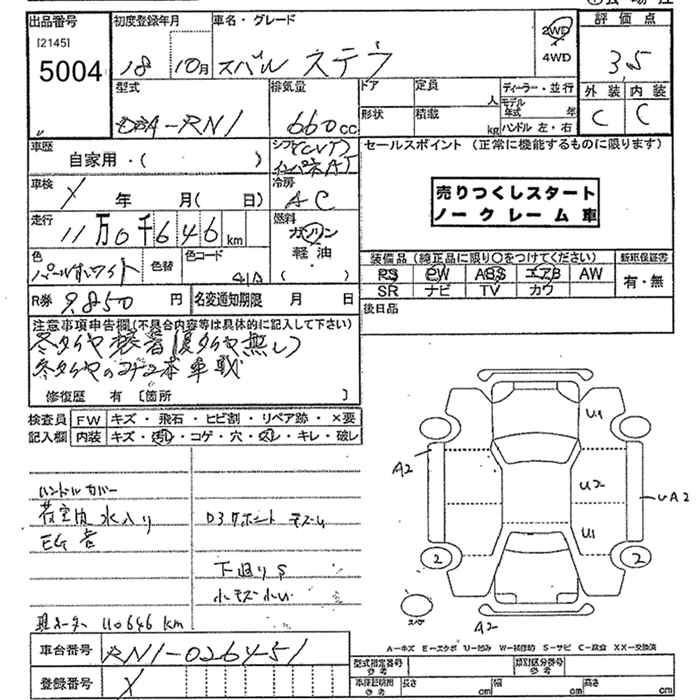 出品番号
[2145]
5004
初度登録年月
18 10月
車名・グレード
スバル ステラ
2WD
4WD
評価点
3,5
外装 内装
C C
型式
DBA-RN1
排気量
660cc
ドア
定員
人
形状
積載
kg
ディーラー・並行
モデル年式 年
ハンドル 左・右
車歴
自家用・( )
シフト(CVT)
インパネAT
セールスポイント (正常に機能するものに限ります)
売りつくしスタート
ノークレーム車
車検
X 年 月( 日)
冷房
AC
走行
11万0千646km
燃料
ガソリン
軽油
( )
色
パールホワイト
色替
色コード
41A
装備品(純正品に限り○をつけてください)
PS PW ABS エアB AW
SR ナビ TV カワ
新車保証書
有・無
R券 9.850 円
名変通知期限 月 日
後日品
注意事項申告欄(不具合内容等は具体的に記入して下さい)
冬タイヤ装着(夏タイヤ無し)
冬タイヤのコチュ本車載
修復歴 有 [箇所 ]
検査員記入欄
FW キズ・飛石・ヒビ割・リペア跡・×要
内装 キズ・汚れ・コゲ・穴・欠レ・キレ・破レ
ハンドルカバー
荷室内水入り
EG音
D3ダボント キズム
下廻りS
小キズ小凹
現メーター 110646 km
U1
A2
U2
UA2
U1
2
2
スペア
A2
車台番号
RN1-026451
登録番号
X
A-キズ E-エクボ U-凹み W-補修跡 S-サビ C-腐食 XX-交換済
型式指定番号
参考
類別区分番号
参考
車体証明用
参考
長さ cm
幅 cm
高さ cm